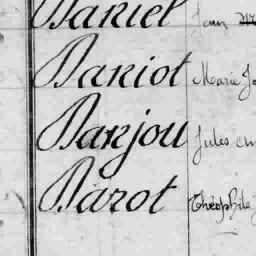 Daniel Jean
Daniot Marie
Danjou Jules
Darot Théophile